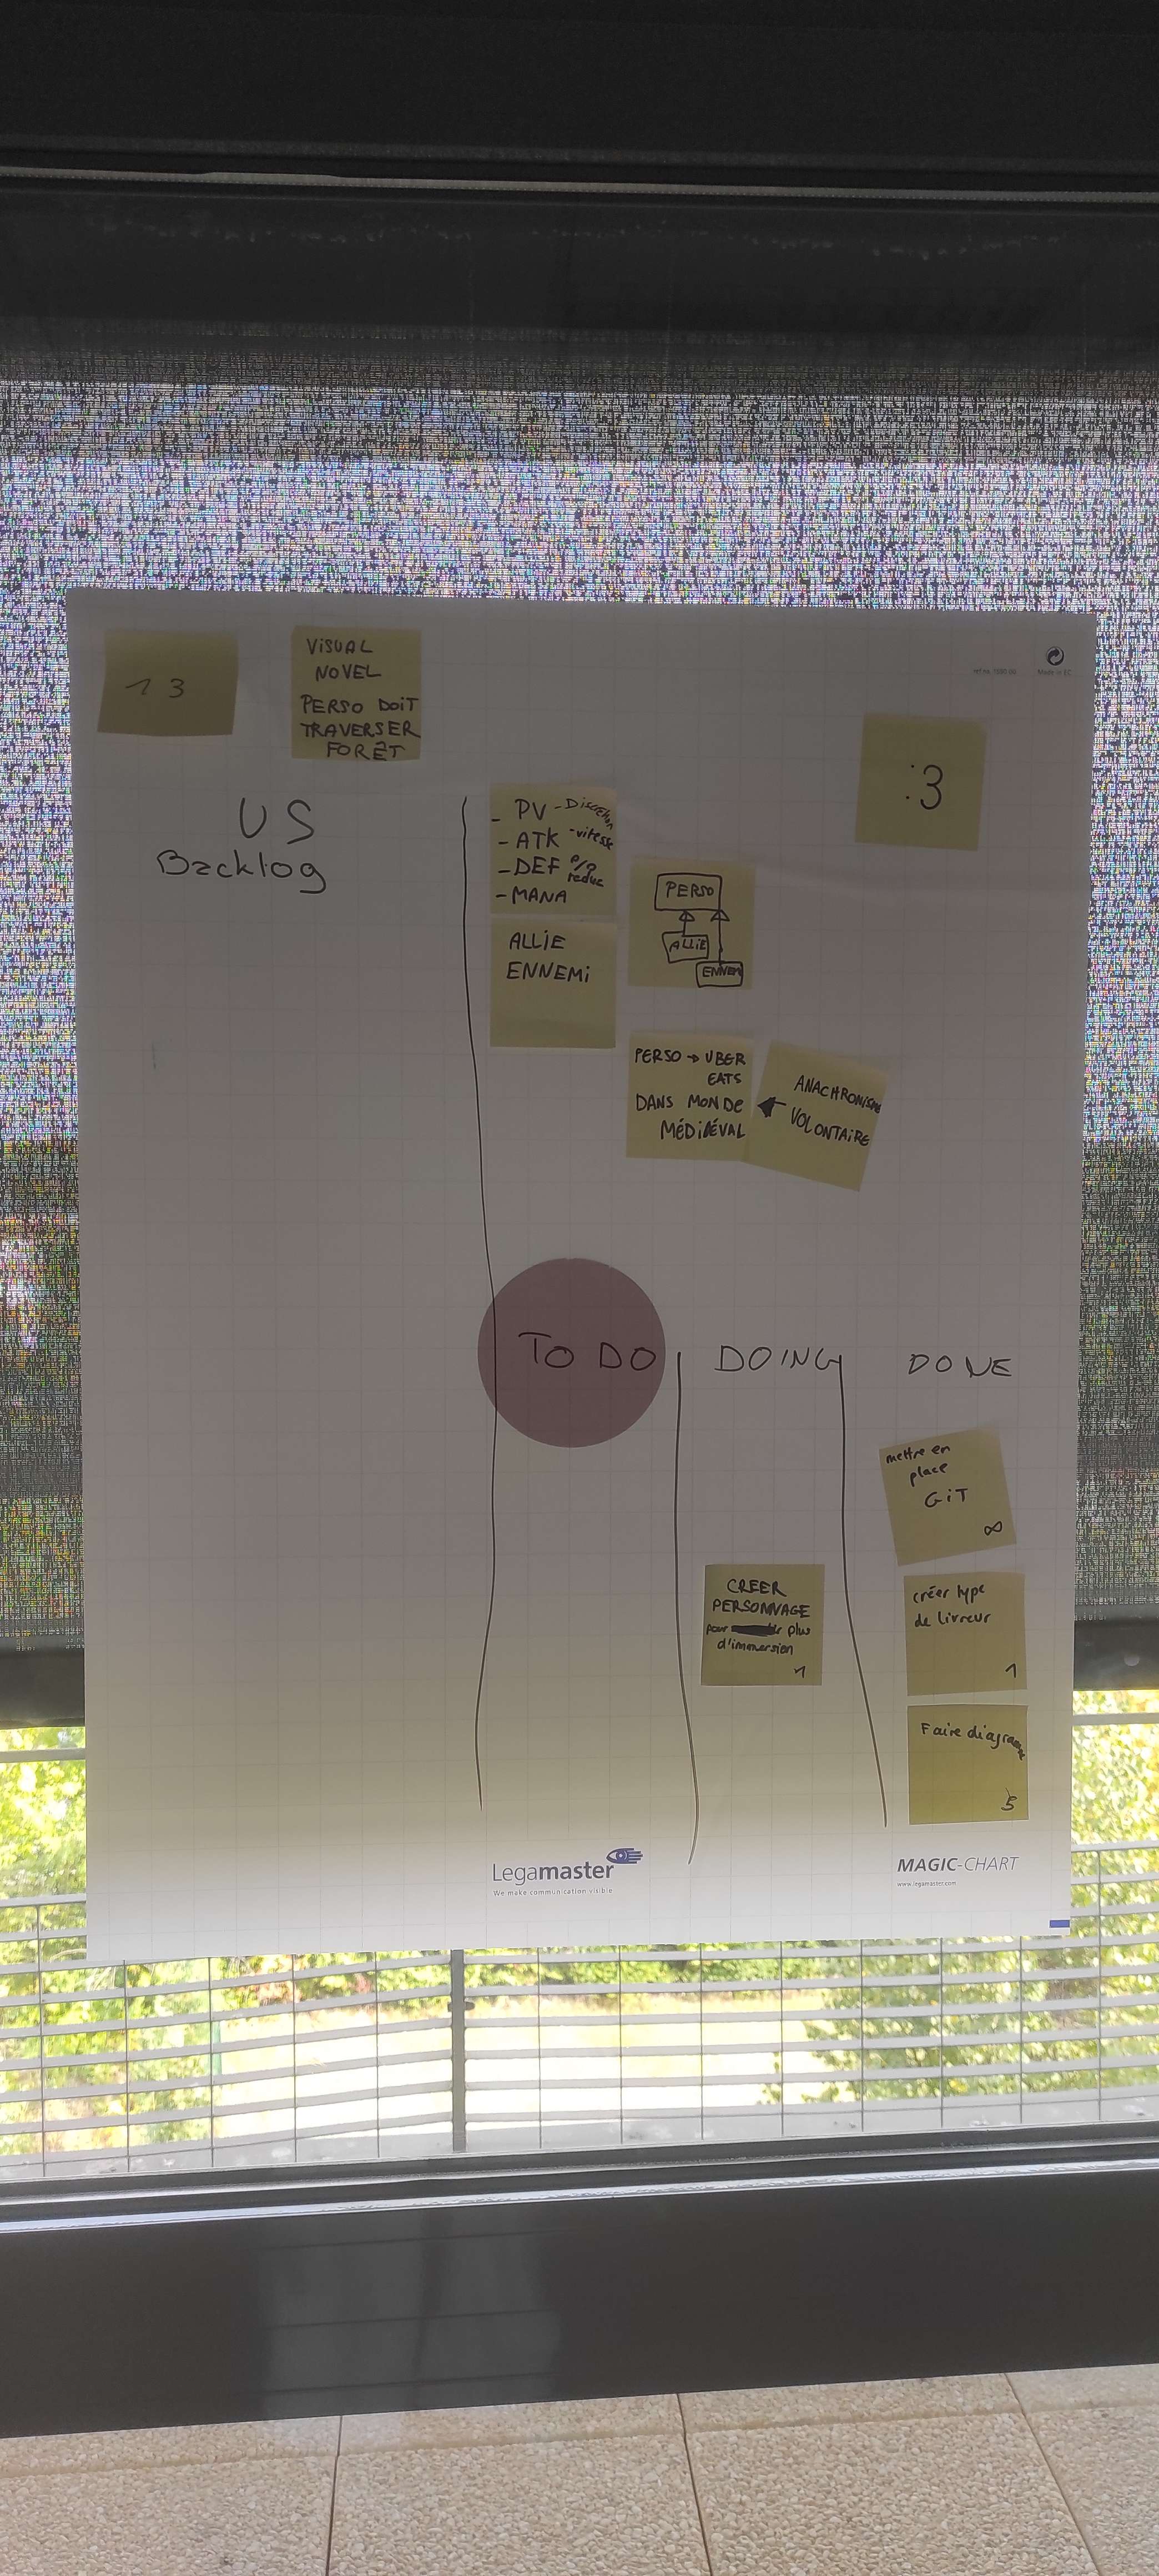 13
VISUAL
NOVEL
PERSO DOIT
TRAVERSER
FORÊT
Made in EC
:3
US
Backlog
- PV - Discrétion
- ATK - vitesse
- DEF % reduc
- MANA
ALLIE
ENNEMI
PERSO
ALLIE
ENNEMI
PERSO → UBER
EATS
DANS MONDE
MÉDIÉVAL
ANACHRONISME
VOLONTAIRE
TO DO
DOING
DONE
mettre en
place
GIT
∞
CREER
PERSONNAGE
pour plus
d'immersion
1
créer type
de livreur
1
Faire diagramme
5
Legamaster
We make communication visible
MAGIC-CHART
www.legamaster.com